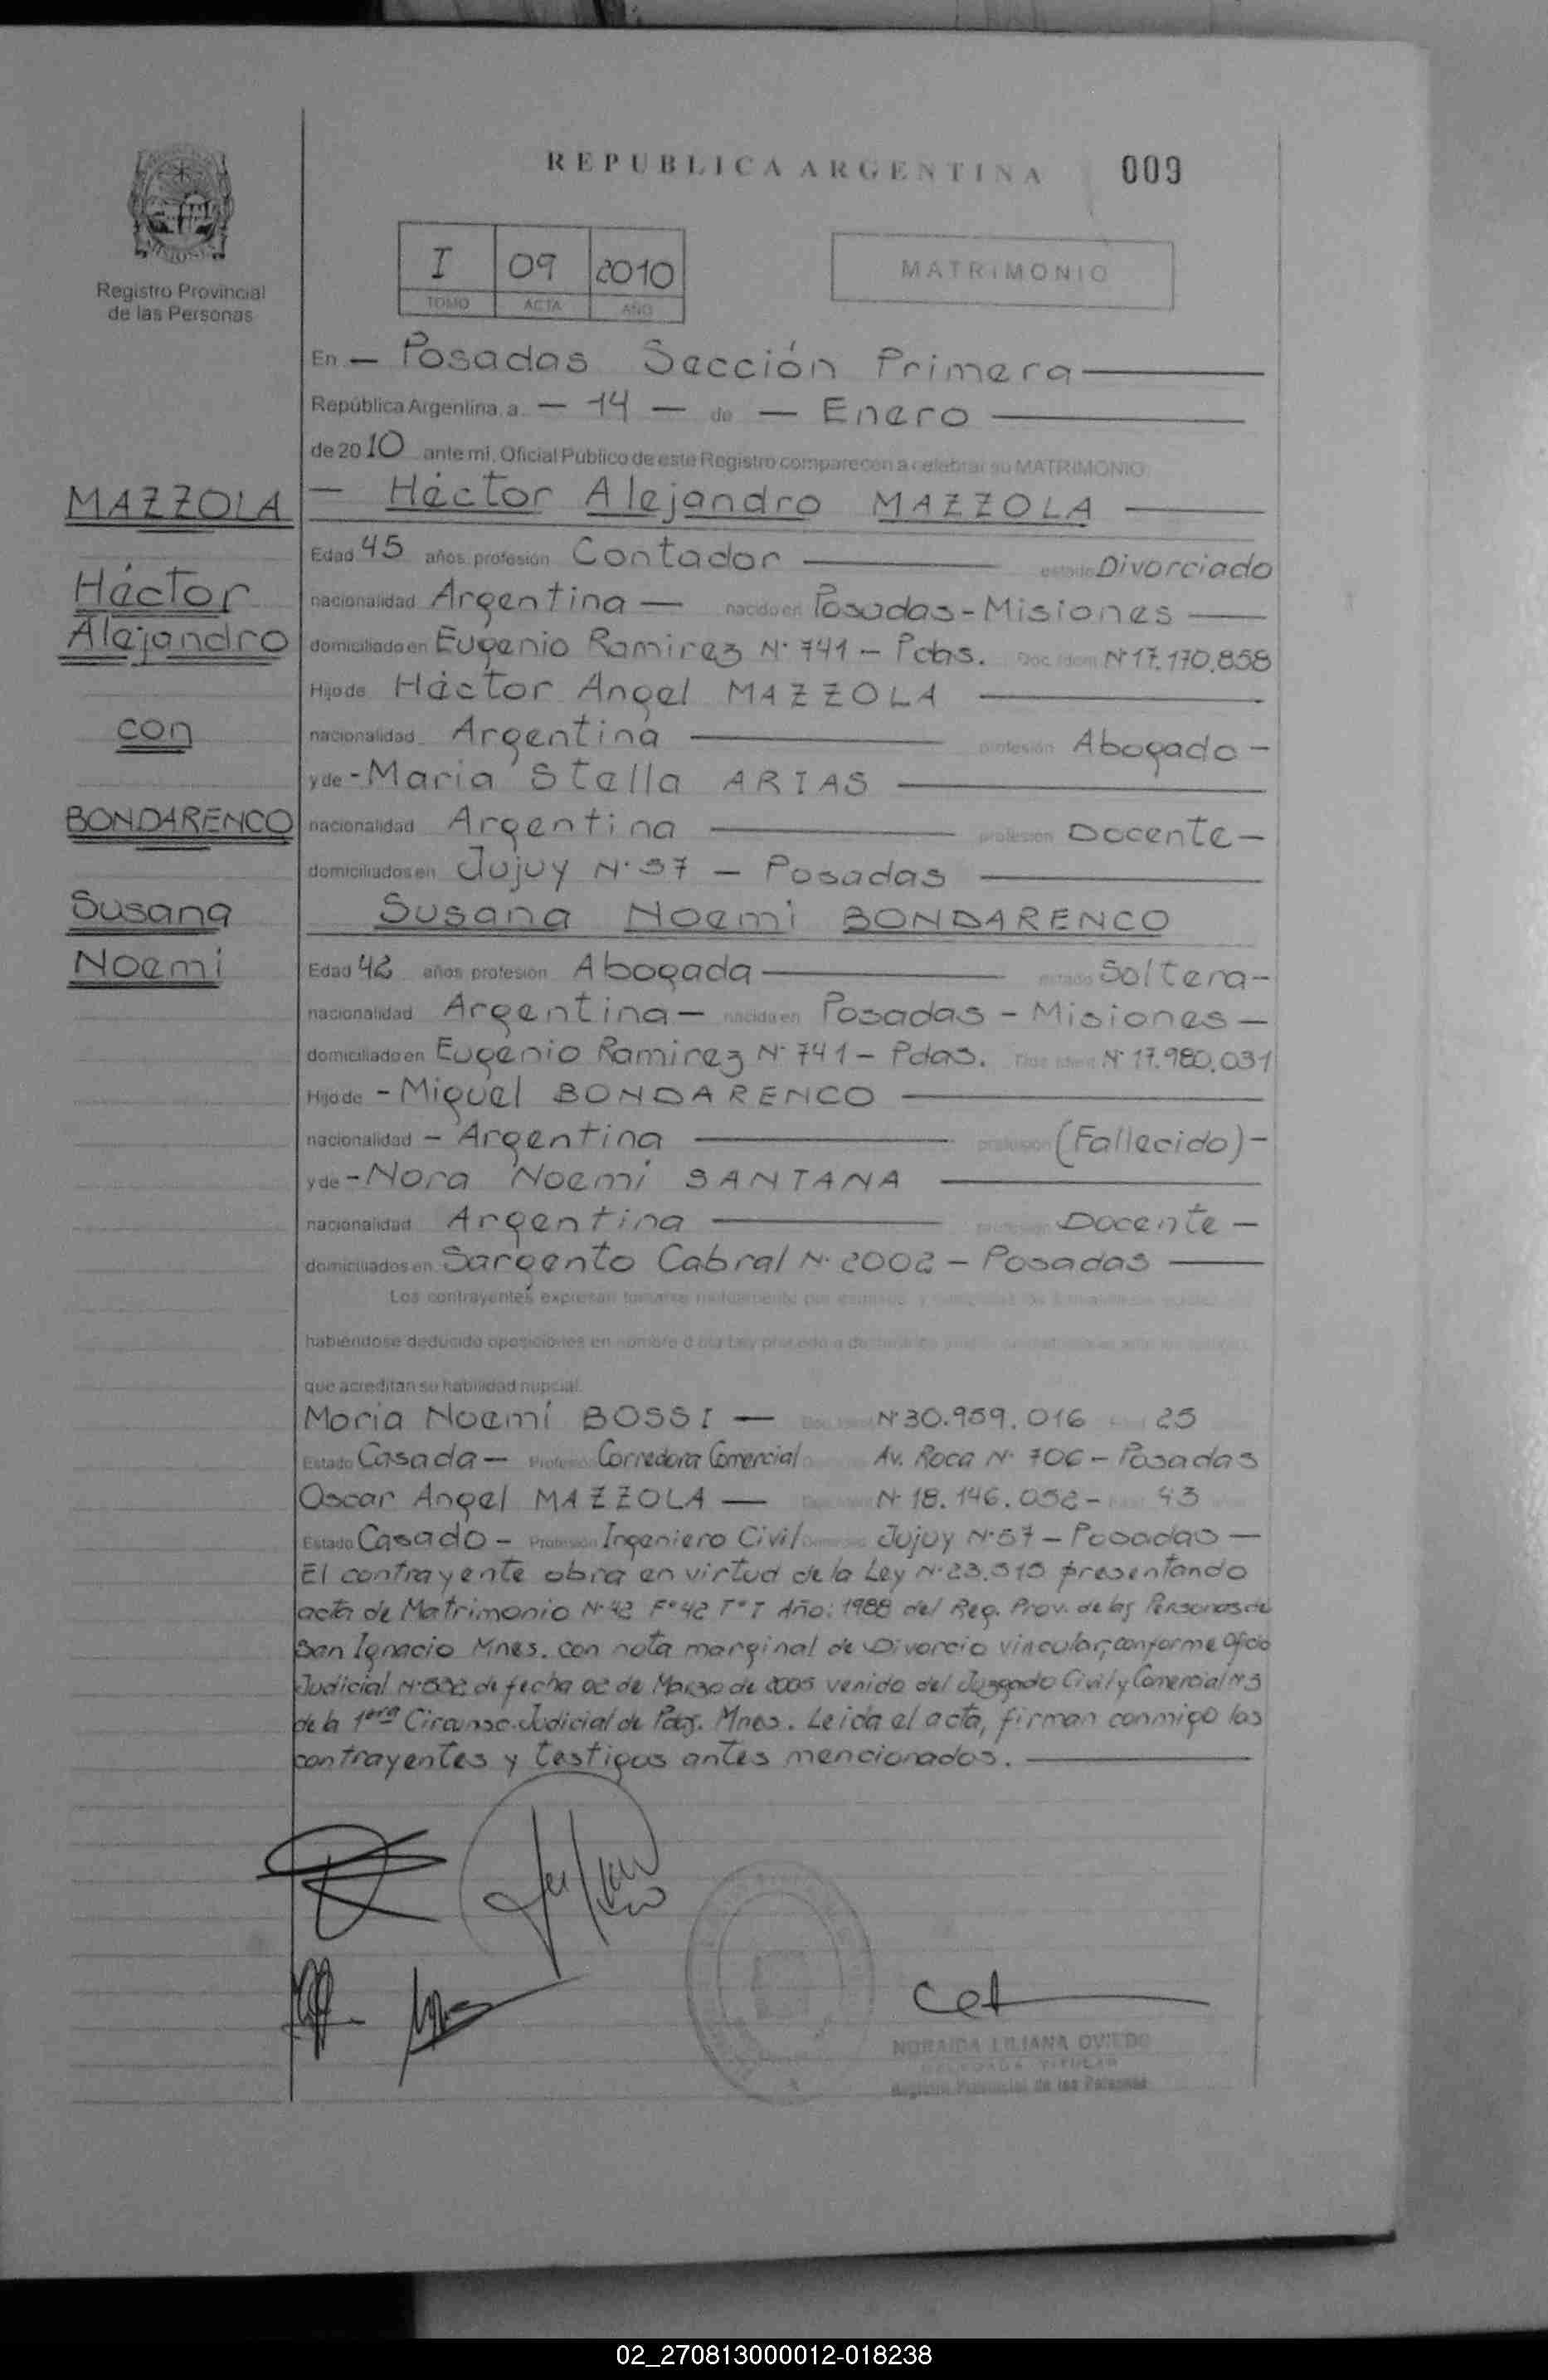 REPUBLICA ARGENTINA 009
Registro Provincial
de las Personas
I 09 2010
TOMO ACTA AÑO
MATRIMONIO
En — Posadas Sección Primera
República Argentina, a — 14 — de — Enero
de 2010 ante mi, Oficial Público de este Registro comparecen a celebrar su MATRIMONIO:
MAZZOLA
Héctor
Alejandro
con
BONDARENCO
Susana
Noemi
— Héctor Alejandro MAZZOLA
Edad 45 años, profesión Contador estado Divorciado
nacionalidad Argentina — nacido en Posadas - Misiones
domiciliado en Eugenio Ramirez N° 741 - Pdas. Doc. Ident. N° 17.170.858
Hijo de Héctor Angel MAZZOLA
nacionalidad Argentina profesión Abogado -
y de - Maria Stella ARIAS
nacionalidad Argentina profesión Docente -
domiciliados en Jujuy N° 57 - Posadas
Susana Noemi BONDARENCO
Edad 42 años profesión Abogada estado Soltera -
nacionalidad Argentina - nacida en Posadas - Misiones -
domiciliado en Eugenio Ramirez N° 741 - Pdas. Doc. Ident. N° 17.980.031
Hijo de - Miguel BONDARENCO
nacionalidad - Argentina profesión (Fallecido) -
y de - Nora Noemi SANTANA
nacionalidad Argentina profesión Docente -
domiciliados en Sargento Cabral N° 2002 - Posadas
Los contrayentes expresan tomarse mutuamente por esposos y
habiéndose deducido oposiciones en nombre d la Ley procedo a
que acreditan su habilidad nupcial.
Maria Noemí BOSSI — Doc. Ident. N° 30.959.016 25
Estado Casada - Profesión Corredora Comercial Av. Roca N° 706 - Posadas
Oscar Angel MAZZOLA — N° 18.146.052 - 43
Estado Casado - Profesión Ingeniero Civil Jujuy N° 57 - Posadas —
El contrayente obra en virtud de la Ley N° 23.515 presentando
acta de Matrimonio N° 42 F° 42 T° I Año: 1988 del Reg. Prov. de las Personas de
San Ignacio Mnes. con nota marginal de Divorcio vincular, conforme Oficio
Judicial N° 532 de fecha 02 de Marzo de 2005 venido del Juzgado Civil y Comercial N° 3
de la 1era Circunsc. Judicial de Pdas. Mnes. Leida el acta, firman conmigo los
contrayentes y testigos antes mencionados.
NORAIDA LILIANA OVIEDO
DELEGADA TITULAR
Registro Provincial de las Personas
02_270813000012-018238